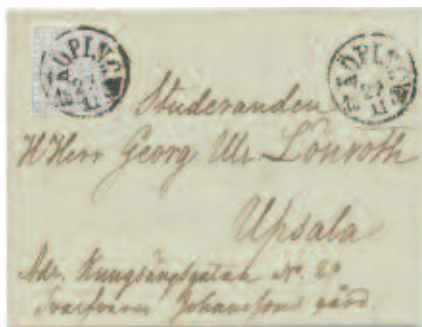 KÖPING
27
11
KÖPING
27
11
Studeranden
HHerr Georg Ulr. Lönroth
Upsala
Adr. Kungsängsgatan No.
Svarfvaren Johanssons gård.